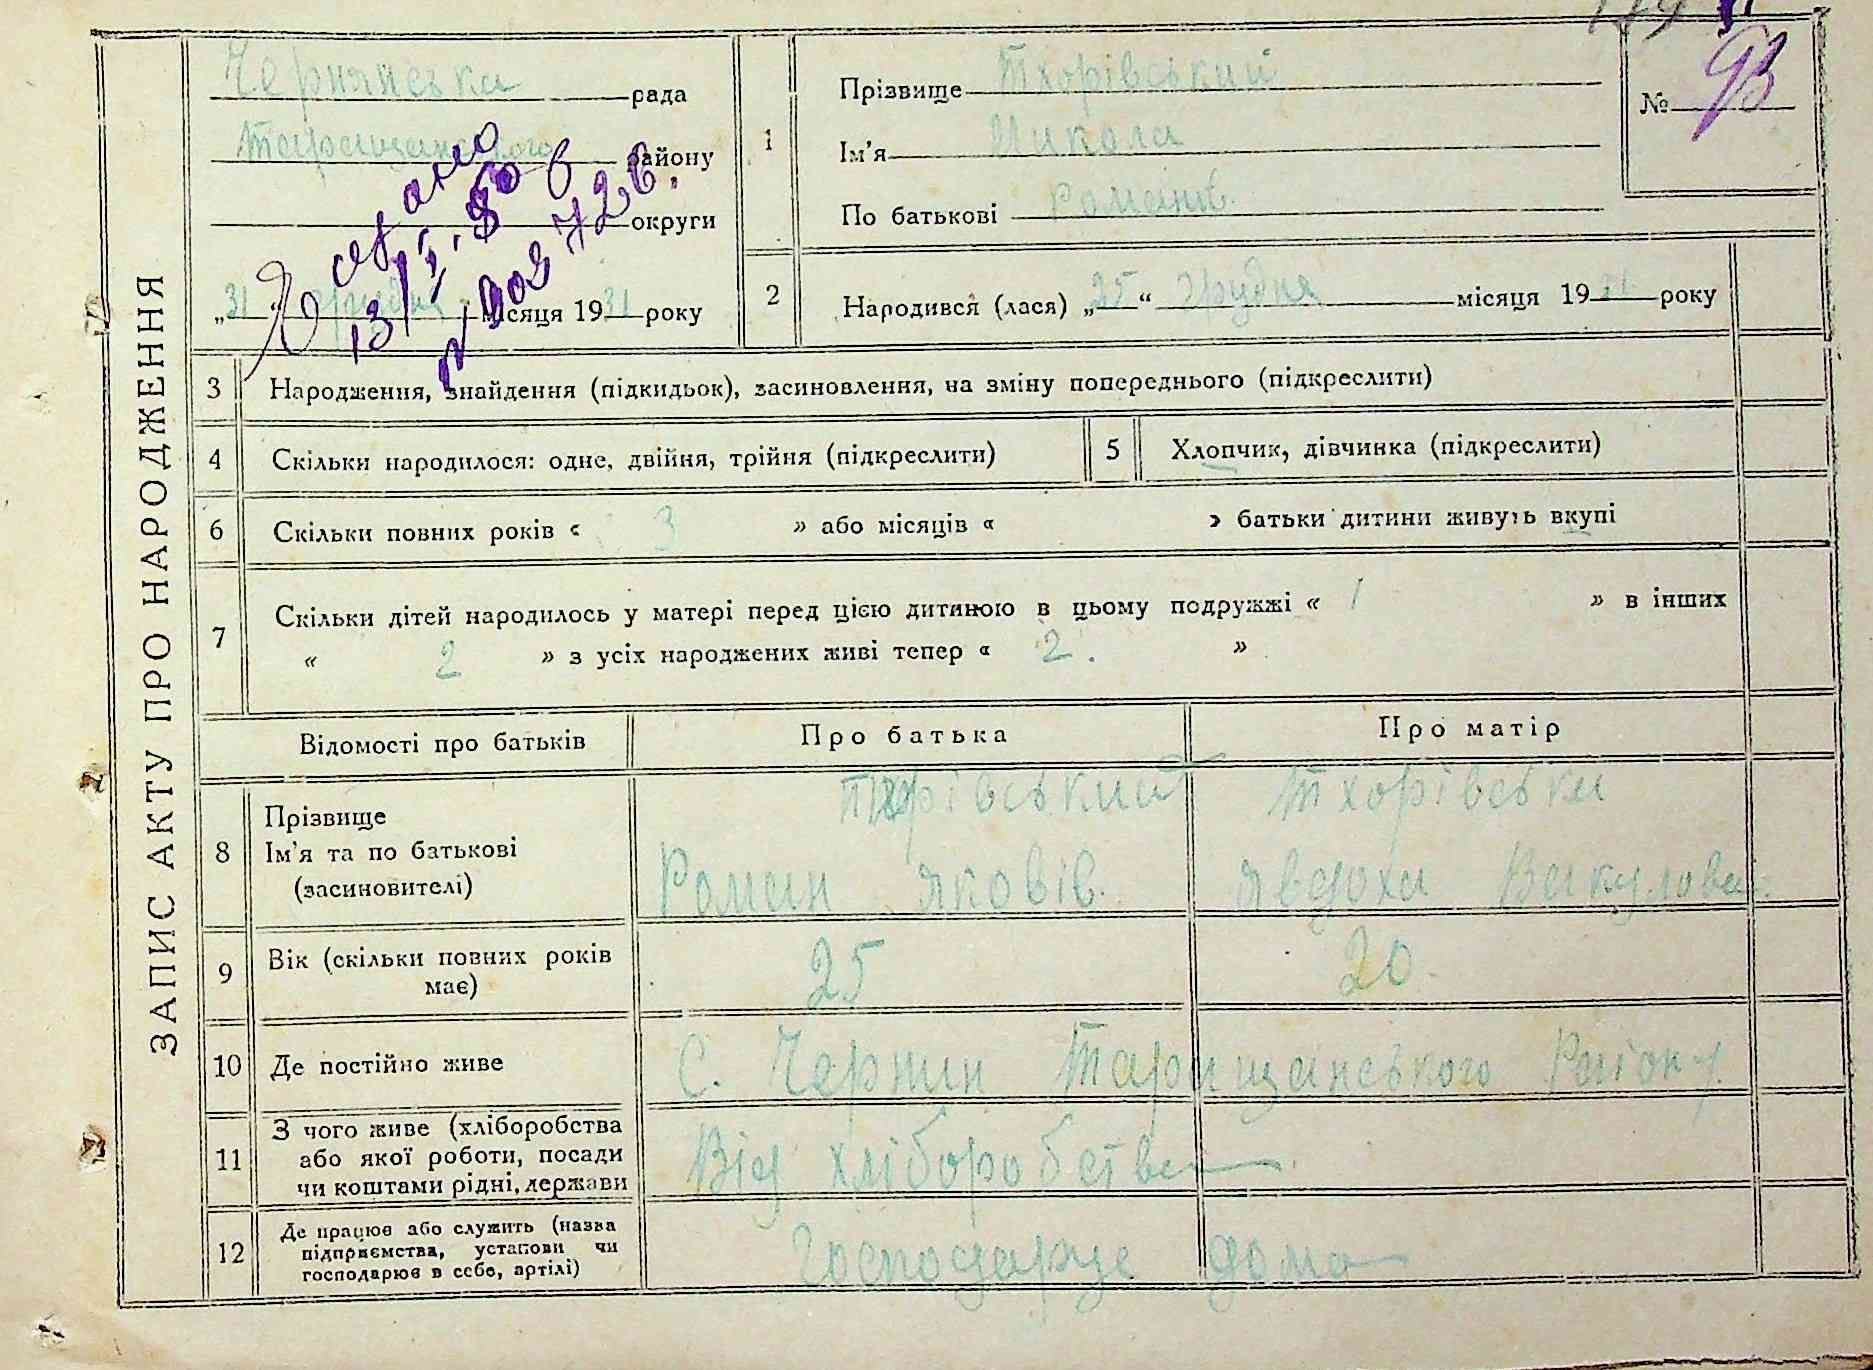 ЗАПИС АКТУ ПРО НАРОДЖЕННЯ
Чернянська рада
Таращанського району
округи
„31“ грудня місяця 1931 року
1
Прізвище Тхорівський
Ім'я Микола
По батькові Романів.
№ 93
2
Народився (лася) „25“ грудня місяця 1931 року
3 Народження, знайдення (підкидьок), засиновлення, на зміну попереднього (підкреслити)
4 Скільки народилося: одне, двійня, трійня (підкреслити)
5 Хлопчик, дівчинка (підкреслити)
6 Скільки повних років « 3 » або місяців « » батьки дитини живуть вкупі
7 Скільки дітей народилось у матері перед цією дитиною в цьому подружжі « 1 » в інших
« 2 » з усіх народжених живі тепер « 2. »
Відомості про батьків Про батька Про матір
8 Прізвище
Ім'я та по батькові
(засиновителі)
Тхорівський
Роман Яковів.
Тхорівська
Явдоха Вакулова
9 Вік (скільки повних років
має)
25 20
10 Де постійно живе С. Чернин Таращанського Району
11 З чого живе (хліборобства
або якої роботи, посади
чи коштами рідні, держави
Від хліборобства
12 Де працює або служить (назва
підприємства, установи чи
господарює в себе, артілі)
Господарює дома